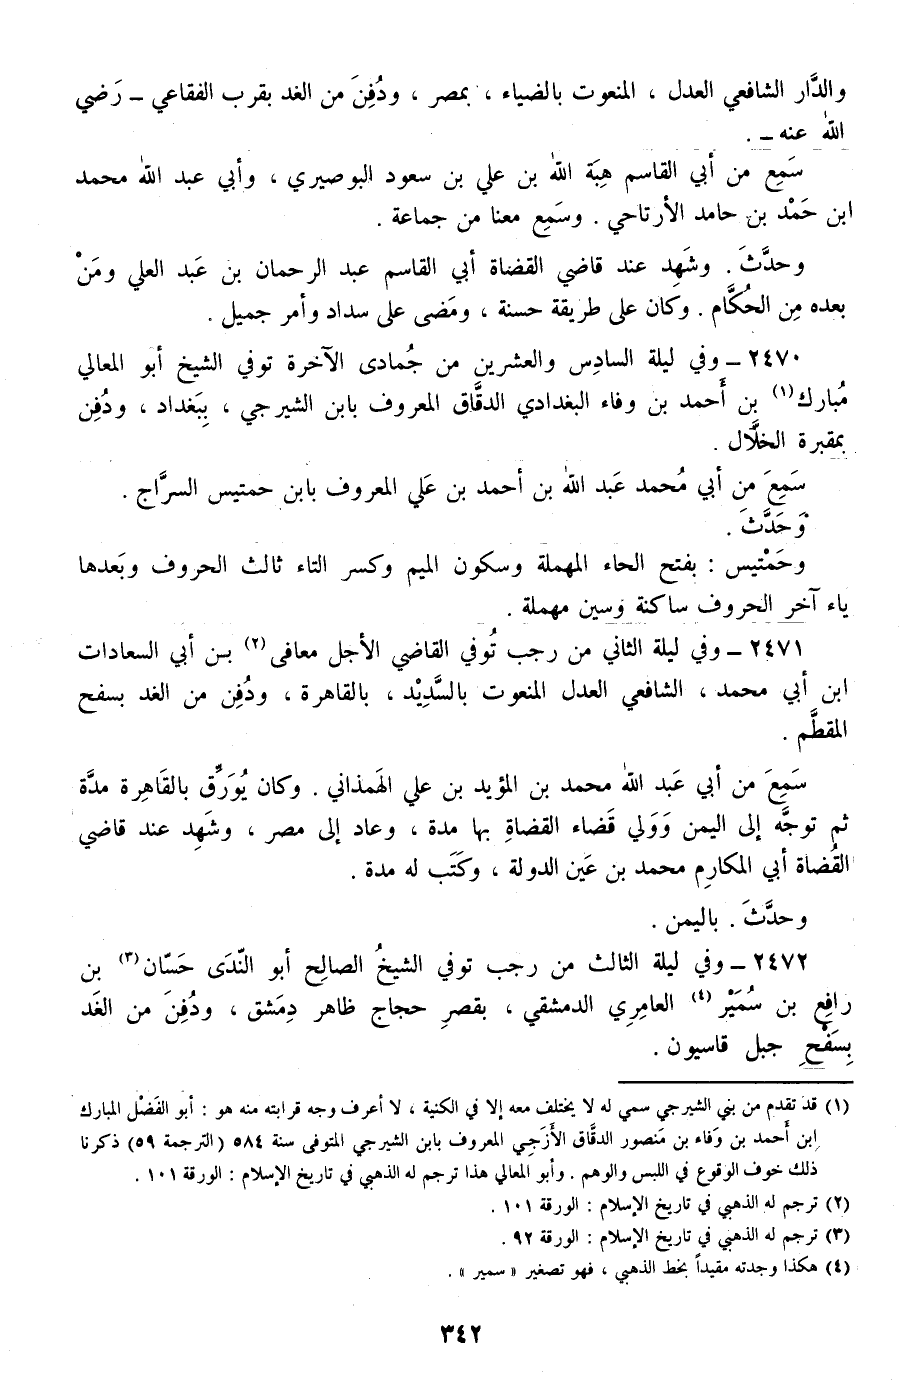 والدَّار الشافعي العدل ، المنعوت بالضياء ، بمصر ، ودُفِنَ من الغد بقرب الفقاعي ـ رَضي
الله عنه ـ .
سَمِع من أبي القاسم هِبَة الله بن علي بن سعود البوصيري ، وأبي عبد الله محمد
ابن حَمْد بن حامد الأرتاحي . وسَمِع معنا من جماعة .
وحدَّثَ . وشَهِد عند قاضي القضاة أبي القاسم عبد الرحمان بن عَبد العلي ومَنْ
بعده مِن الحُكَّام . وكان على طريقة حسنة ، ومَضى على سداد وأمر جميل .
٢٤٧٠ ـ وفي ليلة السادِس والعشرين من جُمادى الآخرة توفي الشيخ أبو المعالي
مُبارك(١) بن أَحمد بن وفاء البغدادي الدقَّاق المعروف بابن الشيرجي ، بِبَغداد ، ودُفِن
بمقبرة الخلَّال .
سَمِعَ من أبي مُحمد عَبد الله بن أحمد بن عَلي المعروف بابن حمتيس السرَّاج .
وَحَدَّثَ .
وحَمْتيس : بفتح الحاء المهملة وسكون الميم وكسر التاء ثالث الحروف وبَعدها
ياء آخر الحروف ساكنة وسين مهملة .
٢٤٧١ ـ وفي ليلة الثاني من رجب تُوفي القاضي الأجل معافى(٢) بن أبي السعادات
ابن أبي محمد ، الشافعي العدل المنعوت بالسَّدِيْد ، بالقاهرة ، ودُفِن من الغد بسفح
المقطَّم .
سَمِعَ من أبي عَبد الله محمد بن المؤيد بن علي الهَمذاني . وكان يُوَرِّق بالقَاهِرة مدَّة
ثم توجَّه إلى اليمن وَوَلي قَضاء القضاةِ بها مدة ، وعاد إلى مصر ، وشَهِد عند قاضي
القُضاة أبي المكارِم محمد بن عَين الدولة ، وكَتَب له مدة .
وحدَّثَ . باليمن .
٢٤٧٢ ـ وفي ليلة الثالث من رجب توفي الشيخُ الصالِح أبو النّدَى حَسّان(٣) بن
رافِع بن سُمَيْر(٤) العامِرِي الدمشقي ، بقصرِ حجاج ظاهر دِمَشق ، ودُفِنَ من الغَد
بِسَفْحِ جبل قاسيون .
(١) قد تقدم من بني الشيرجي سمي له لا يختلف معه إلا في الكنية ، لا أعرف وجه قرابته منه هو : أبو الفَضْل المبارك
ابن أَحمد بن وَفاء بن مَنصور الدقَّاق الأَزَجي المعروف بابن الشيرجي المتوفى سنة ٥٨٤ (الترجمة ٥٩) ذكرنا
ذلك خوف الوقوع في اللبس والوهم . وأبو المعالي هذا ترجم له الذهبي في تاريخ الإسلام : الورقة ١٠١ .
(٢) ترجم له الذهبي في تاريخ الإسلام : الورقة ١٠١ .
(٣) ترجم له الذهبي في تاريخ الإسلام : الورقة ٩٢ .
(٤) هكذا وجدته مقيداً بخط الذهبي ، فهو تصغير « سمير » .
٣٤٢